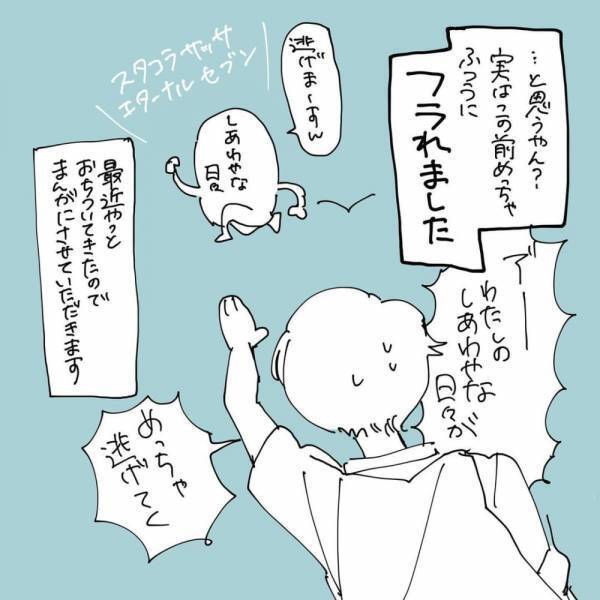 …と思うやん?
実はこの前めっちゃ
ふつうに
フラれました
逃げまーすん
スタコラサッサ
エターナルセブン
しあわせな
日々
わたしの
しあわせな
日々が
めっちゃ
逃げてく
最近やっと
おちついてきたので
まんがにさせていただきます